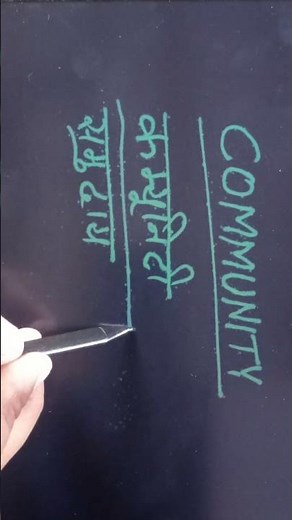 COMMUNITY
कम्युनिटी
समुदाय